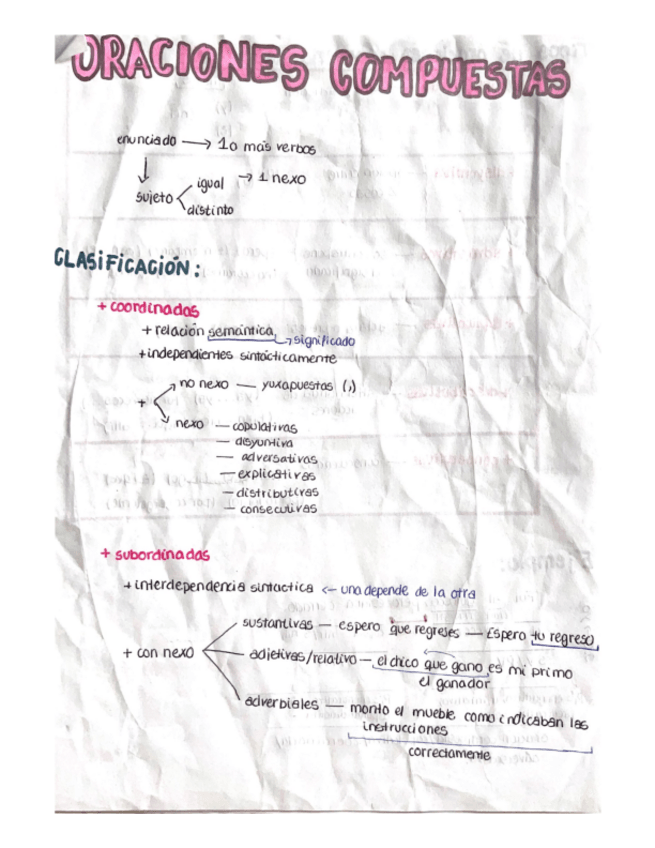 ORACIONES COMPUESTAS
enunciado → 1 o más verbos
igual → 1 nexo
sujeto
distinto
CLASIFICACIÓN:
+ coordinadas
+ relación semántica → significado
+ independientes sintácticamente
no nexo — yuxapuestas (,)
+
nexo — copulativas
— disyuntiva
— adversativas
— explicativas
— distributivas
— consecutivas
+ subordinadas
+ interdependencia sintactica ← una depende de la otra
sustantivas — espero que regreses — Espero tu regreso
+ con nexo
adjetivas/relativo — el chico que gano es mi primo
el ganador
adverbiales — monto el mueble como indicaban las
instrucciones
correctamente